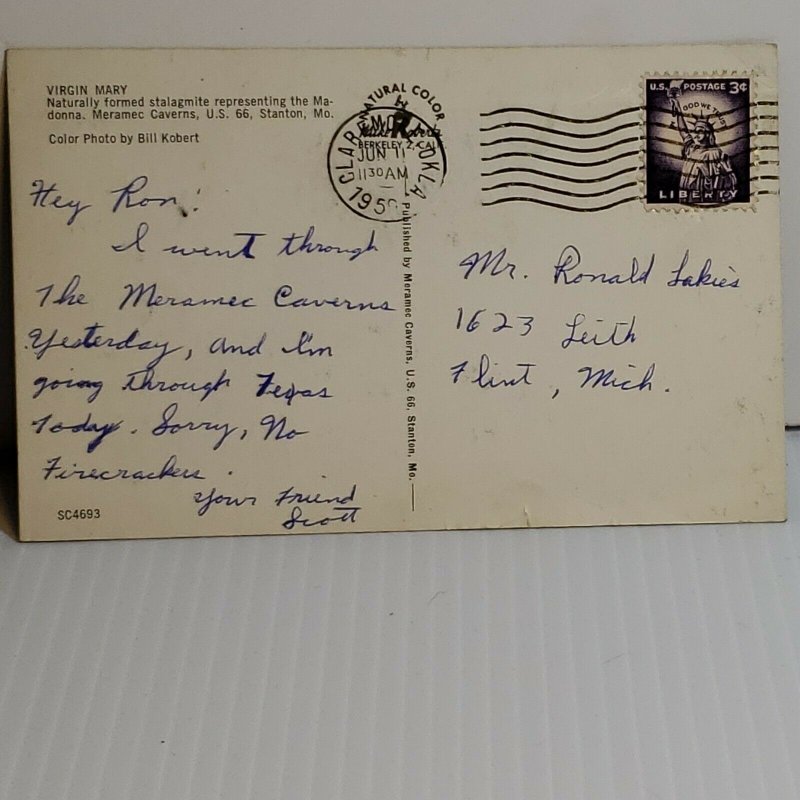 VIRGIN MARY
Naturally formed stalagmite representing the Ma-
donna. Meramec Caverns, U.S. 66, Stanton, Mo.
Color Photo by Bill Kobert
Hey Ron!
I went through
The Meramec Caverns
Yesterday, and I'm
going through Texas
Today. Sorry, No
Firecrackers.
Your Friend
Scott
SC4693
NATURAL COLOR
BERKELEY 2, CAL
CLAREMORE OKLA
JUN 11
11 30 AM
Published by Meramec Caverns, U.S. 66, Stanton, Mo.
U.S. POSTAGE 3¢
IN GOD WE TRUST
LIBERTY
Mr. Ronald Lakies
1623 Leith
Flint, Mich.